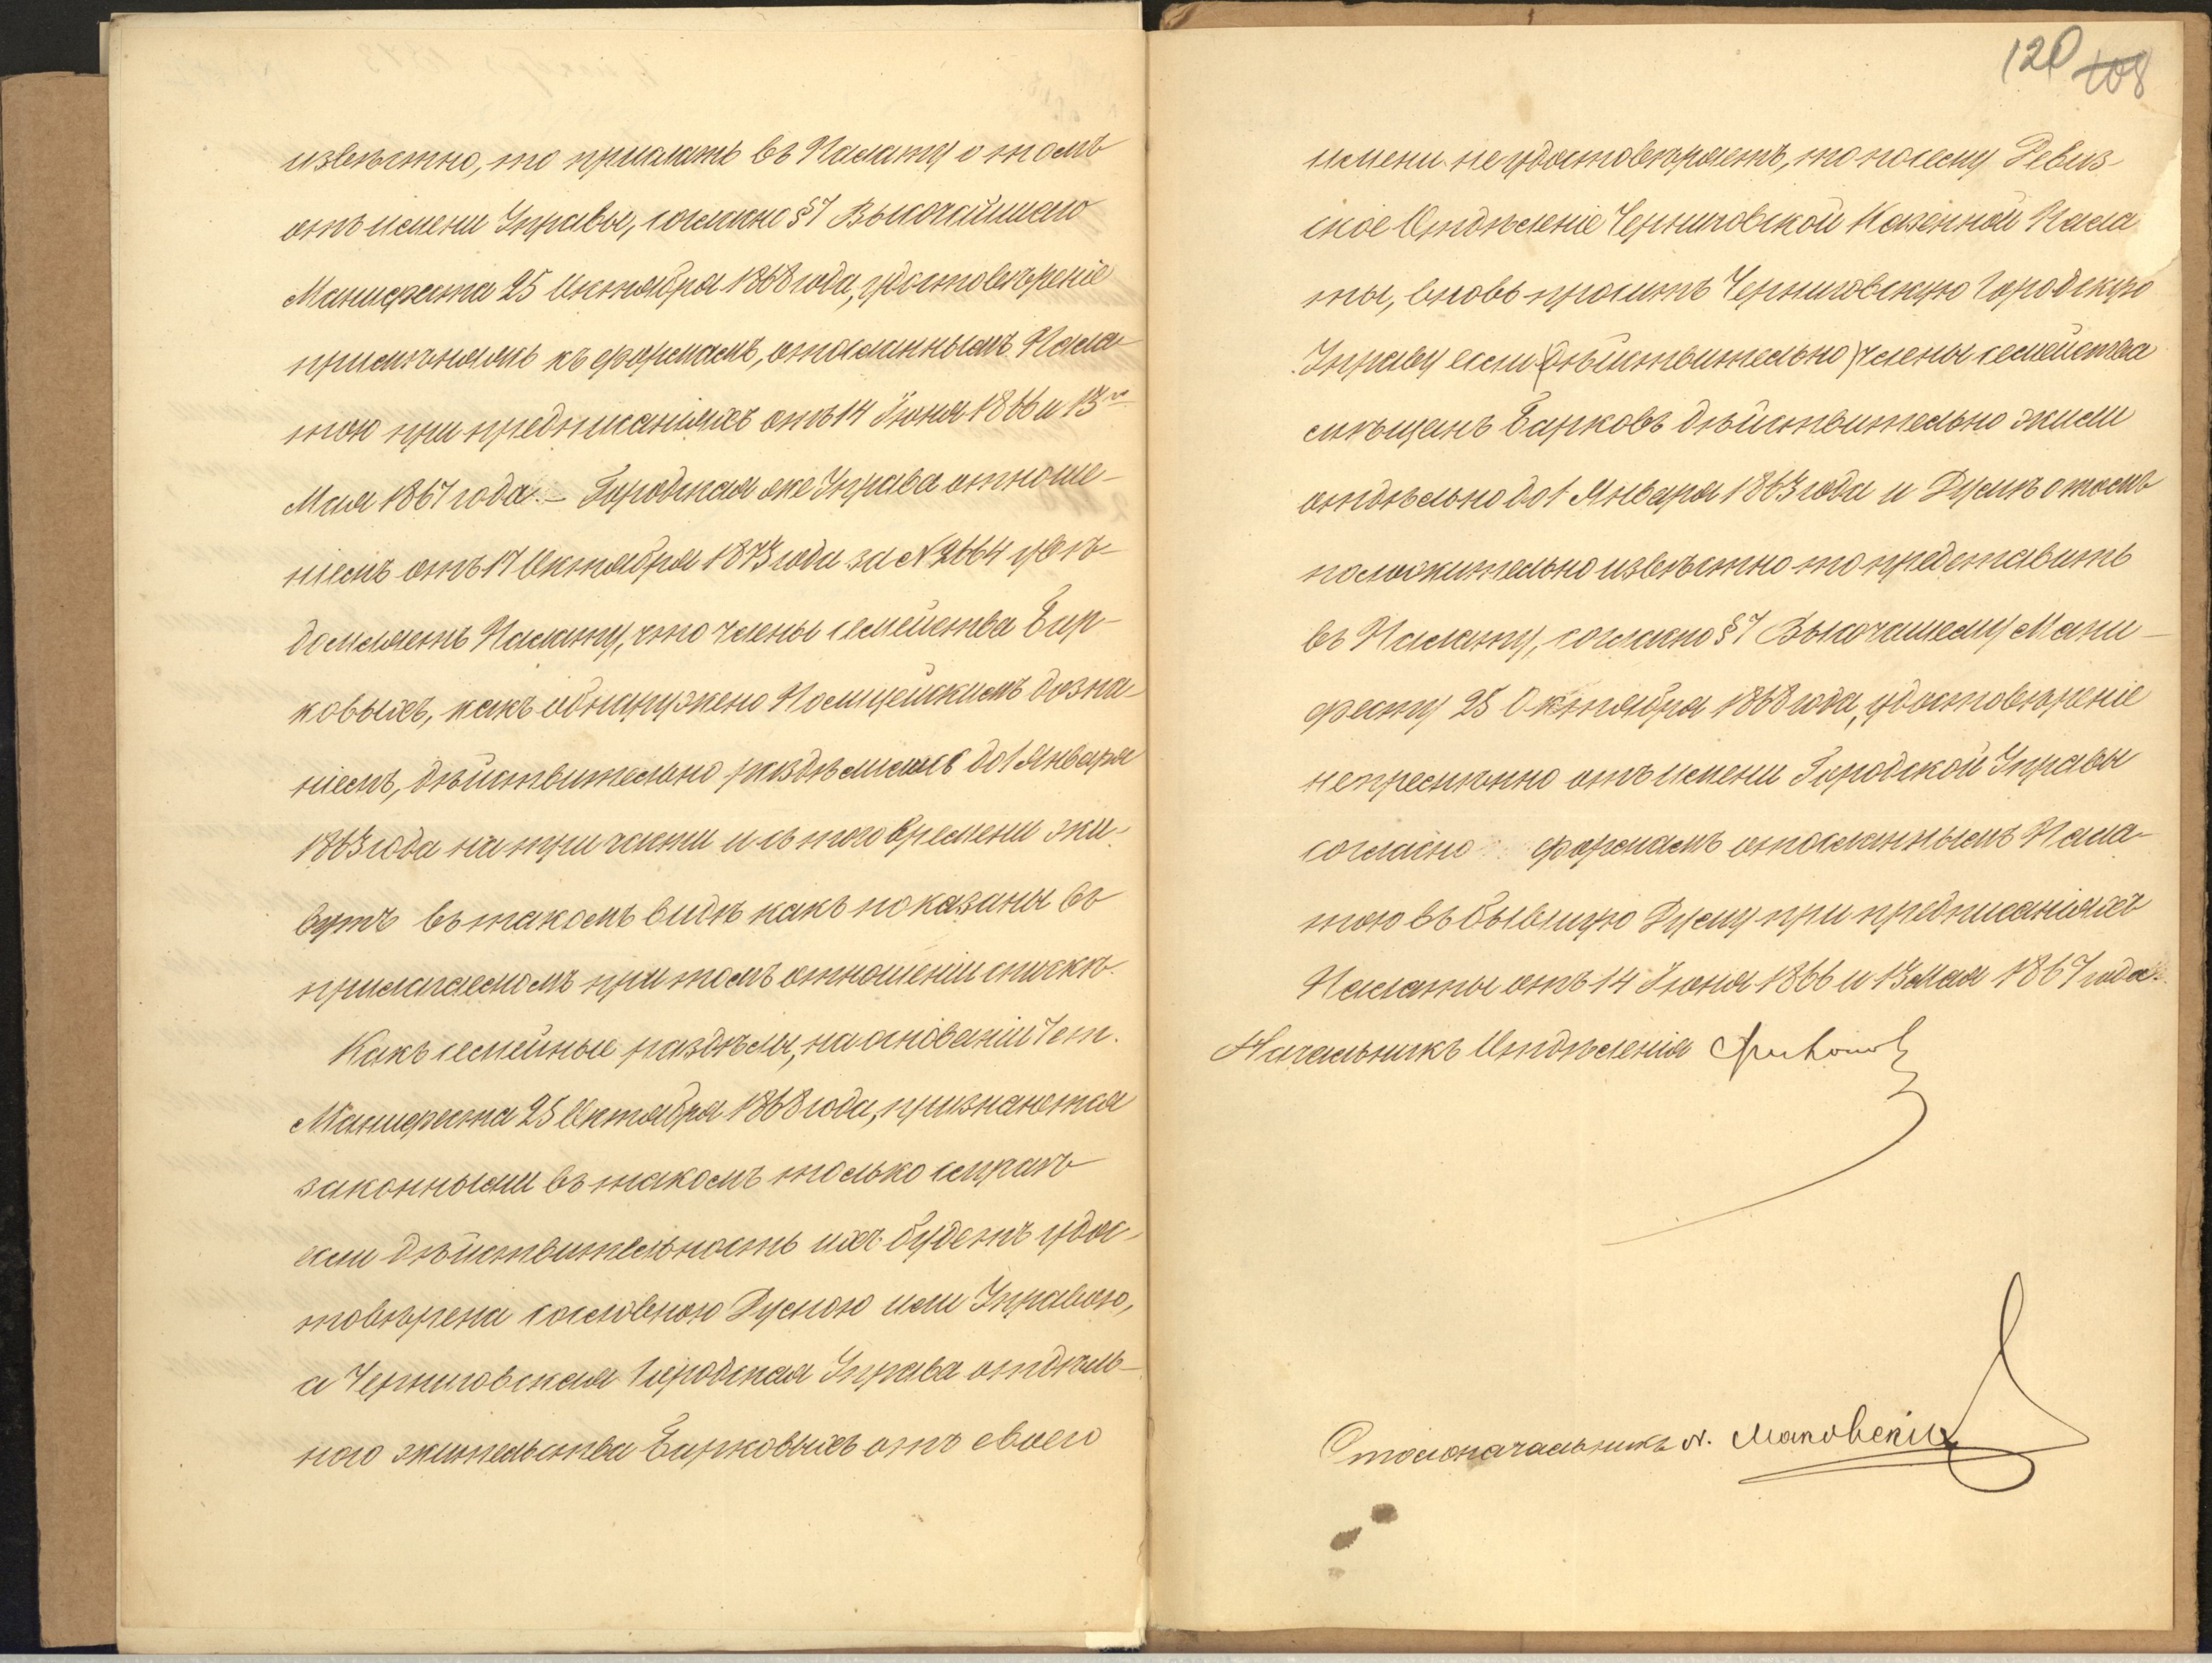 извѣстно, то прислать въ Палату о томъ
отъ имени Управы, согласно § 7 Высочайшаго
Манифеста 25 Октября 1868 года, удостовѣреніе
примѣняясь къ формамъ, отосланнымъ Пала-
тою при предписаніяхъ отъ 14 Іюня 1866 и 13го
Мая 1867 года. – Городская же Управа отноше-
ніемъ отъ 17 Октября 1873 года за № 2664 увѣ-
домляетъ Палату, что члены семейства Бар-
ковыхъ, какъ обнаружено Полицейскимъ дозна-
ніемъ, дѣйствительно раздѣлились до 1 Января
1863 года на три части и съ того времени жи-
вутъ въ такомъ видѣ какъ показаны въ
прилагаемомъ при томъ отношеніи спискѣ.
Какъ семейные раздѣлы, на основаніи 7 ст.
Манифеста 25 Октября 1868 года, признаются
законными въ такомъ только случаѣ
если дѣйствительность ихъ будетъ удос-
товѣрена сословною Думою или Управою,
а Черниговская Городская Управа отдѣль-
наго жительства Барковыхъ отъ своего
120 108
имени не удостовѣряетъ, то посему Ревиз-
ское Отдѣленіе Черниговской Казенной Пала
ты, вновь проситъ Черниговскую Городскую
Управу если (дѣйствительно) члены семейства
мѣщанъ Барковъ дѣйствительно жили
отдѣльно до 1 Января 1863 года и Думѣ о томъ
положительно извѣстно то представить
въ Палату, согласно § 7 Высочашему Мани-
фесту 25 Октября 1868 года, удостовѣреніе
непремѣнно отъ имени Городской Управы
согласно формамъ отосланнымъ Пала-
тою въ бывшую Думу при предписаніяхъ
Палаты отъ 14 Іюня 1866 и 13 Мая 1867 года.
Начальникъ Отдѣленія
Столоначальникъ Маковскій